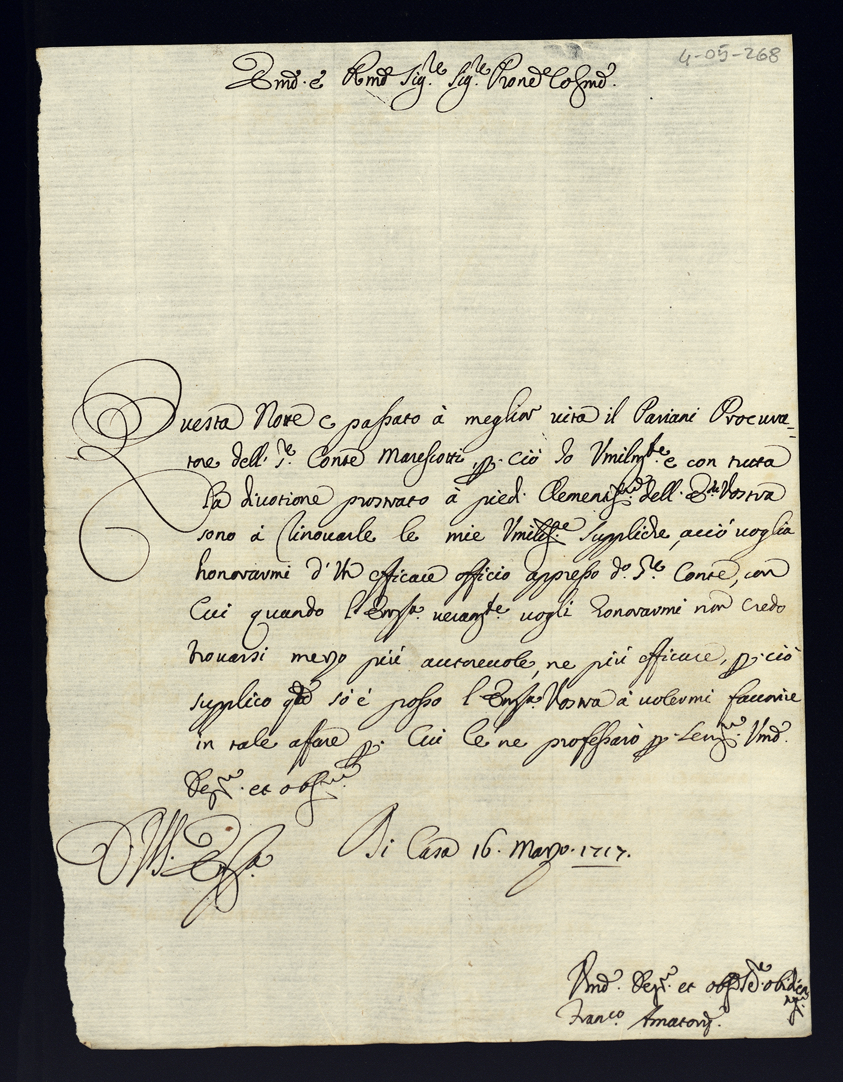 4-05-268
Emo. e Rmo Sig.re Sig.re Prone Colmo.
Questa Notte è passato à meglior vita il Paviani Procura=
tore dell. S.re Conte Marescotti, p. ciò Io Umilmte. e con tutta
la divotione prostrato à piedi Clementmi. dell. Eza Vostra
sono à rinovarle le mie Umilme Suppliche, acciò voglia
honorarmi d'Un efficace officio appresso do. S.re Conte, con
Cui quando l'Emza. veramte. vogli honorarmi non credo
trovarsi mezo più autorevole, ne più efficace, p. ciò
supplico qto so é posso l'Emza. Vostra à volermi favorire
in tale affare p. Cui le ne professarò p. sempre Umo.
Devmo. et obmo
D.V. Emza. Di Casa 16. Marzo. 1717.
Umo. Devmo. et obmo Se.re obidien
mo.
Franco. Amatori